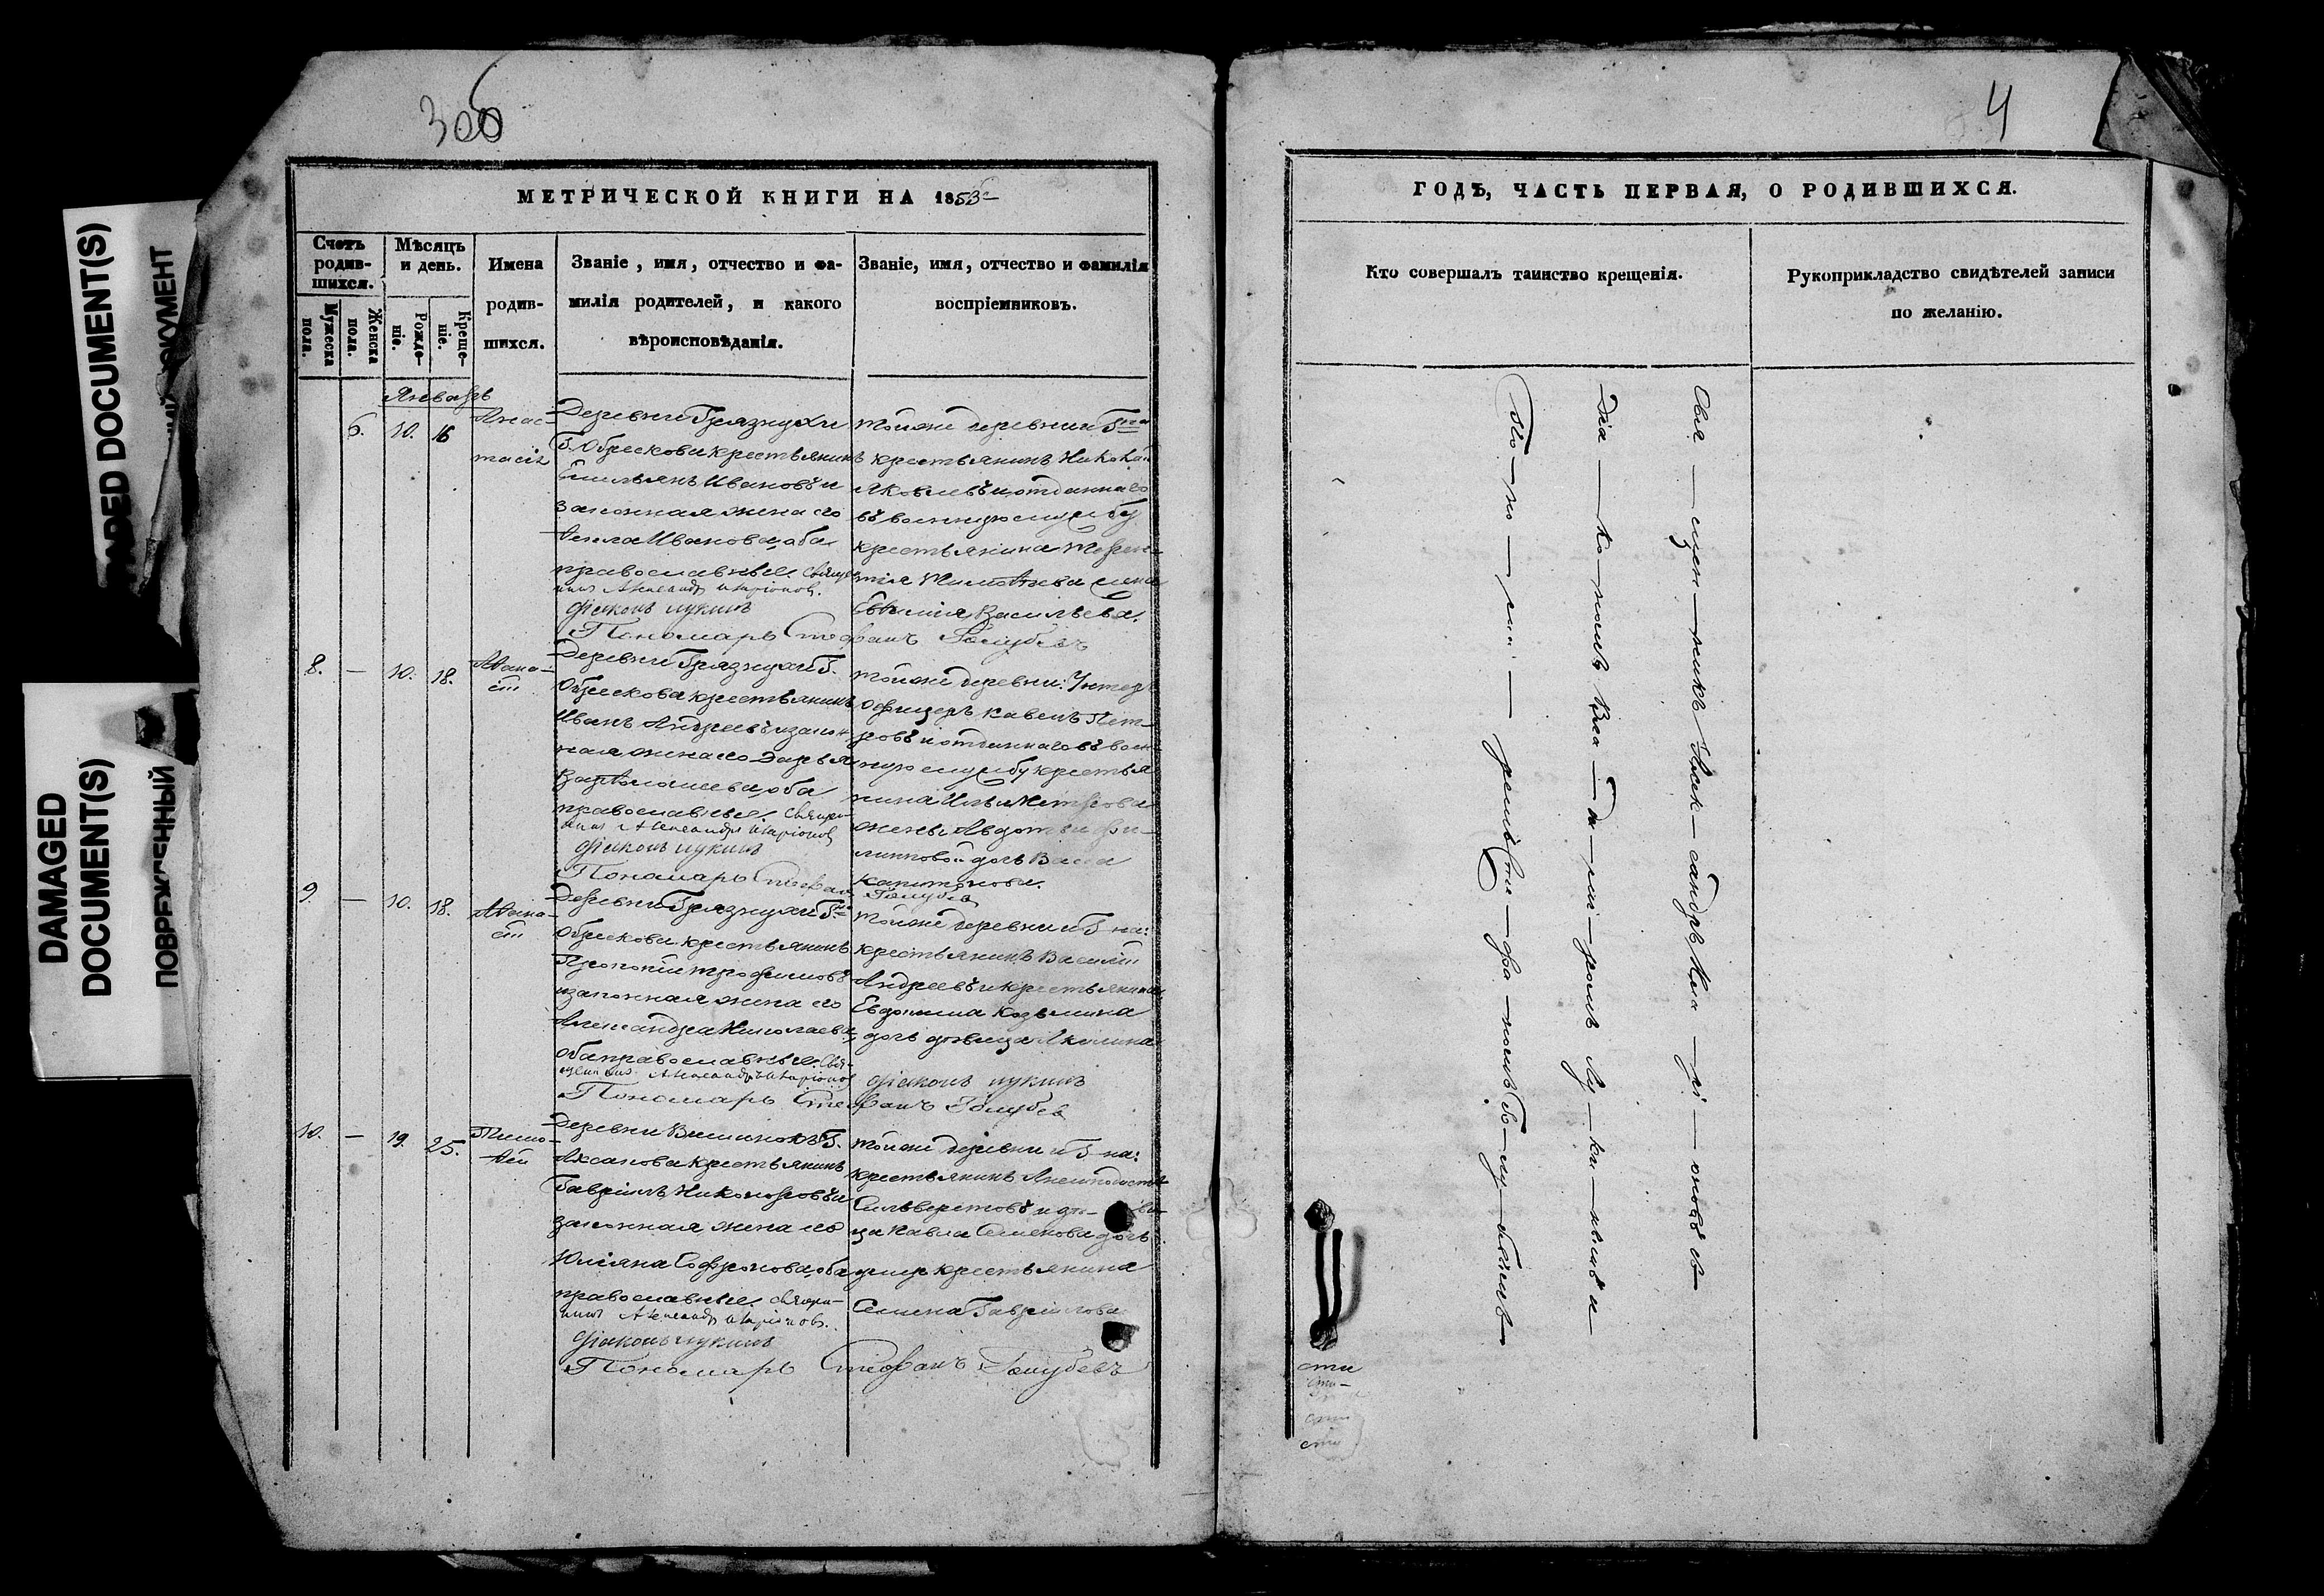 DAMAGED DOCUMENT(S)
DAMAGED
DOCUMENT(S)
ПОВРЕЖДЕННЫЙ
4
МЕТРИЧЕСКОЙ КНИГИ НА 1853
Счетъ родив-шихся.
Мужеска пола.
Женска пола.
Мѣсяцъ и день.
Рожде-ніе.
Креще-ніе.
Имена родив-шихся.
Званіе, имя, отчество и фа-
милія родителей, и какого
вѣроисповѣданія.
Званіе, имя, отчество и фамилія
воспріемниковъ.
Январь
6. 10. 16
Анас-
тасія
Деревни Грязнухи
Г. Обрескова крестьянинъ
Емельянъ Ивановъ и
законная жена его
Ѳекла Иванова, оба
православные. Священ-
никъ Александръ
Діаконъ Лукинъ
Пономарь Стефанъ Голубевъ
тойже деревни Гна
крестьянинъ Николай
Яковлевъ и отданнаго
въ военную службу
крестьянина Терен-
тія Тимоѳеева жена
Евѳимія Васильева.
8. — 10. 18.
Аѳана-
сій
Деревни Грязнухи Г.
Обрескова крестьянинъ
Иванъ Андреевъ и закон-
ная жена его Дарья
Варѳоломеева, оба
православные. Священ-
никъ Александръ
Діаконъ Лукинъ
Пономарь Стефанъ Голубевъ
тойже деревни: Унтеръ
Офицеръ Павелъ Пет-
ровъ и отданнаго въ воен-
ную службу крестья-
нина Ильи Петрова
жены Авдотьи Фи-
липповой дочь Васса
Капитонова.
9. — 10. 18.
Аѳана-
сій
Деревни Грязнухи Гна
Обрескова крестьянинъ
Прокопій Трофимовъ
и законная жена его
Александра Николаева,
оба православные. Свя-
щенникъ Александръ
Пономарь Стефанъ Голубев
тойже деревни и Г-на:
крестьянинъ Василій
Андреевъ и крестьянина
Евдокима Козьмина
дочь дѣвица Акилина
Діаконъ Лукинъ
10. — 19. 25.
Тимо-
ѳей
Деревни Г.
крестьянинъ
Гавріилъ Никоноровъ и
законная жена его
Юліяна Софронова, оба
православные. Священ-
никъ Александръ
Діаконъ Лукинъ
Пономарь Стефанъ Голубевъ
тойже деревни и Г-на:
крестьянинъ
Сильверстовъ и
Семенова дочь
крестьянина
Семена Гаврилова
ГОДЪ, ЧАСТЬ ПЕРВАЯ, О РОДИВШИХСЯ.
Кто совершалъ таинство крещенія.
Рукоприкладство свидѣтелей записи
по желанію.
Свя — щен — никъ Алек — сандръ
Діа — ко — номъ Вла — ди — ми — ромъ Лу — ки — нымъ и
По — но — ма — ремъ Сте — фа — номъ Го — лу — бевымъ